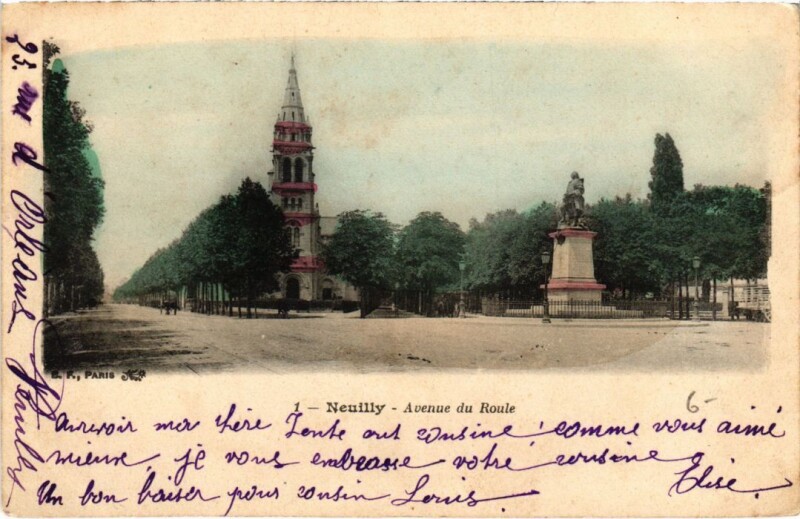 93. rue d'Orléans Neuilly
E. F., PARIS
1 – Neuilly - Avenue du Roule
6-
aurevoir mer chère Tente ont cousine comme vous aimé
mieux, je vous embrasse votre cousine
Elise.
Un bon baiser pour cousin Louis